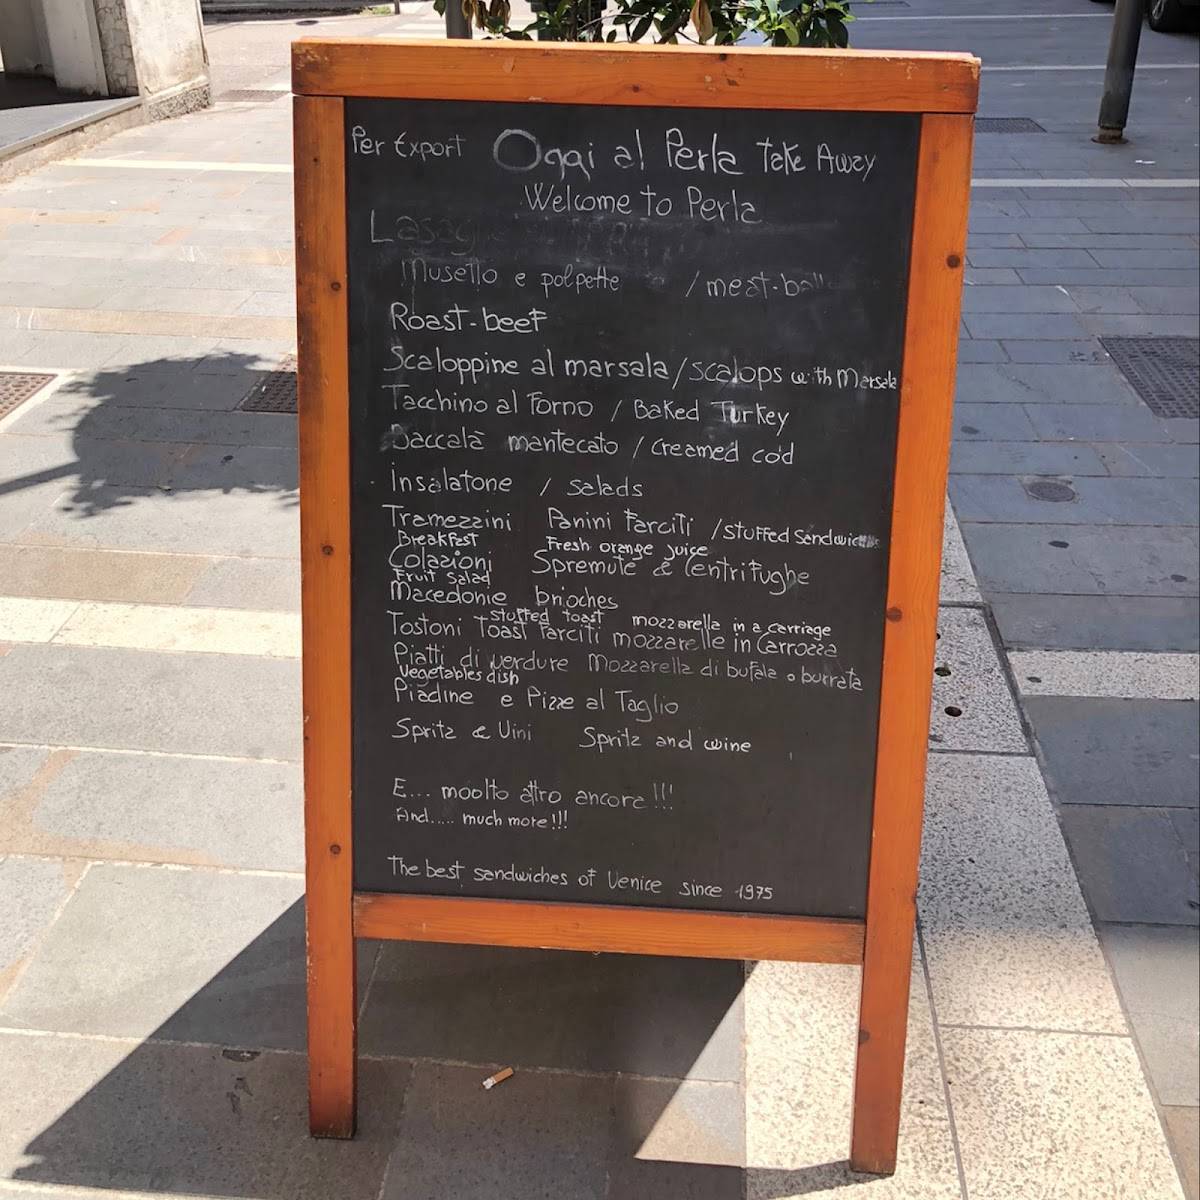 Per Export Oggi al Perla take Away
Welcome to Perla
Musetto e polpette / meat-ball
Roast-beef
Scaloppine al marsala / scalops with Marsala
Tacchino al Forno / Baked Turkey
Baccalà mantecato / creamed cod
Insalatone / salads
Tramezzini Panini Farciti / stuffed sandwiches
Breakfast Fresh orange juice
Colazioni Spremute & Centrifughe
Fruit salad
Macedonie brioches
stuffed toast mozzarella in a carriage
Tostoni Toast Farciti mozzarelle in Carrozza
Piatti di verdure Mozzarella di bufala o burrata
Vegetables dish
Piadine e Pizze al Taglio
Spritz & Vini Spritz and wine
E... moolto altro ancora!!!
And..... much more!!!
The best sandwiches of Venice since 1975